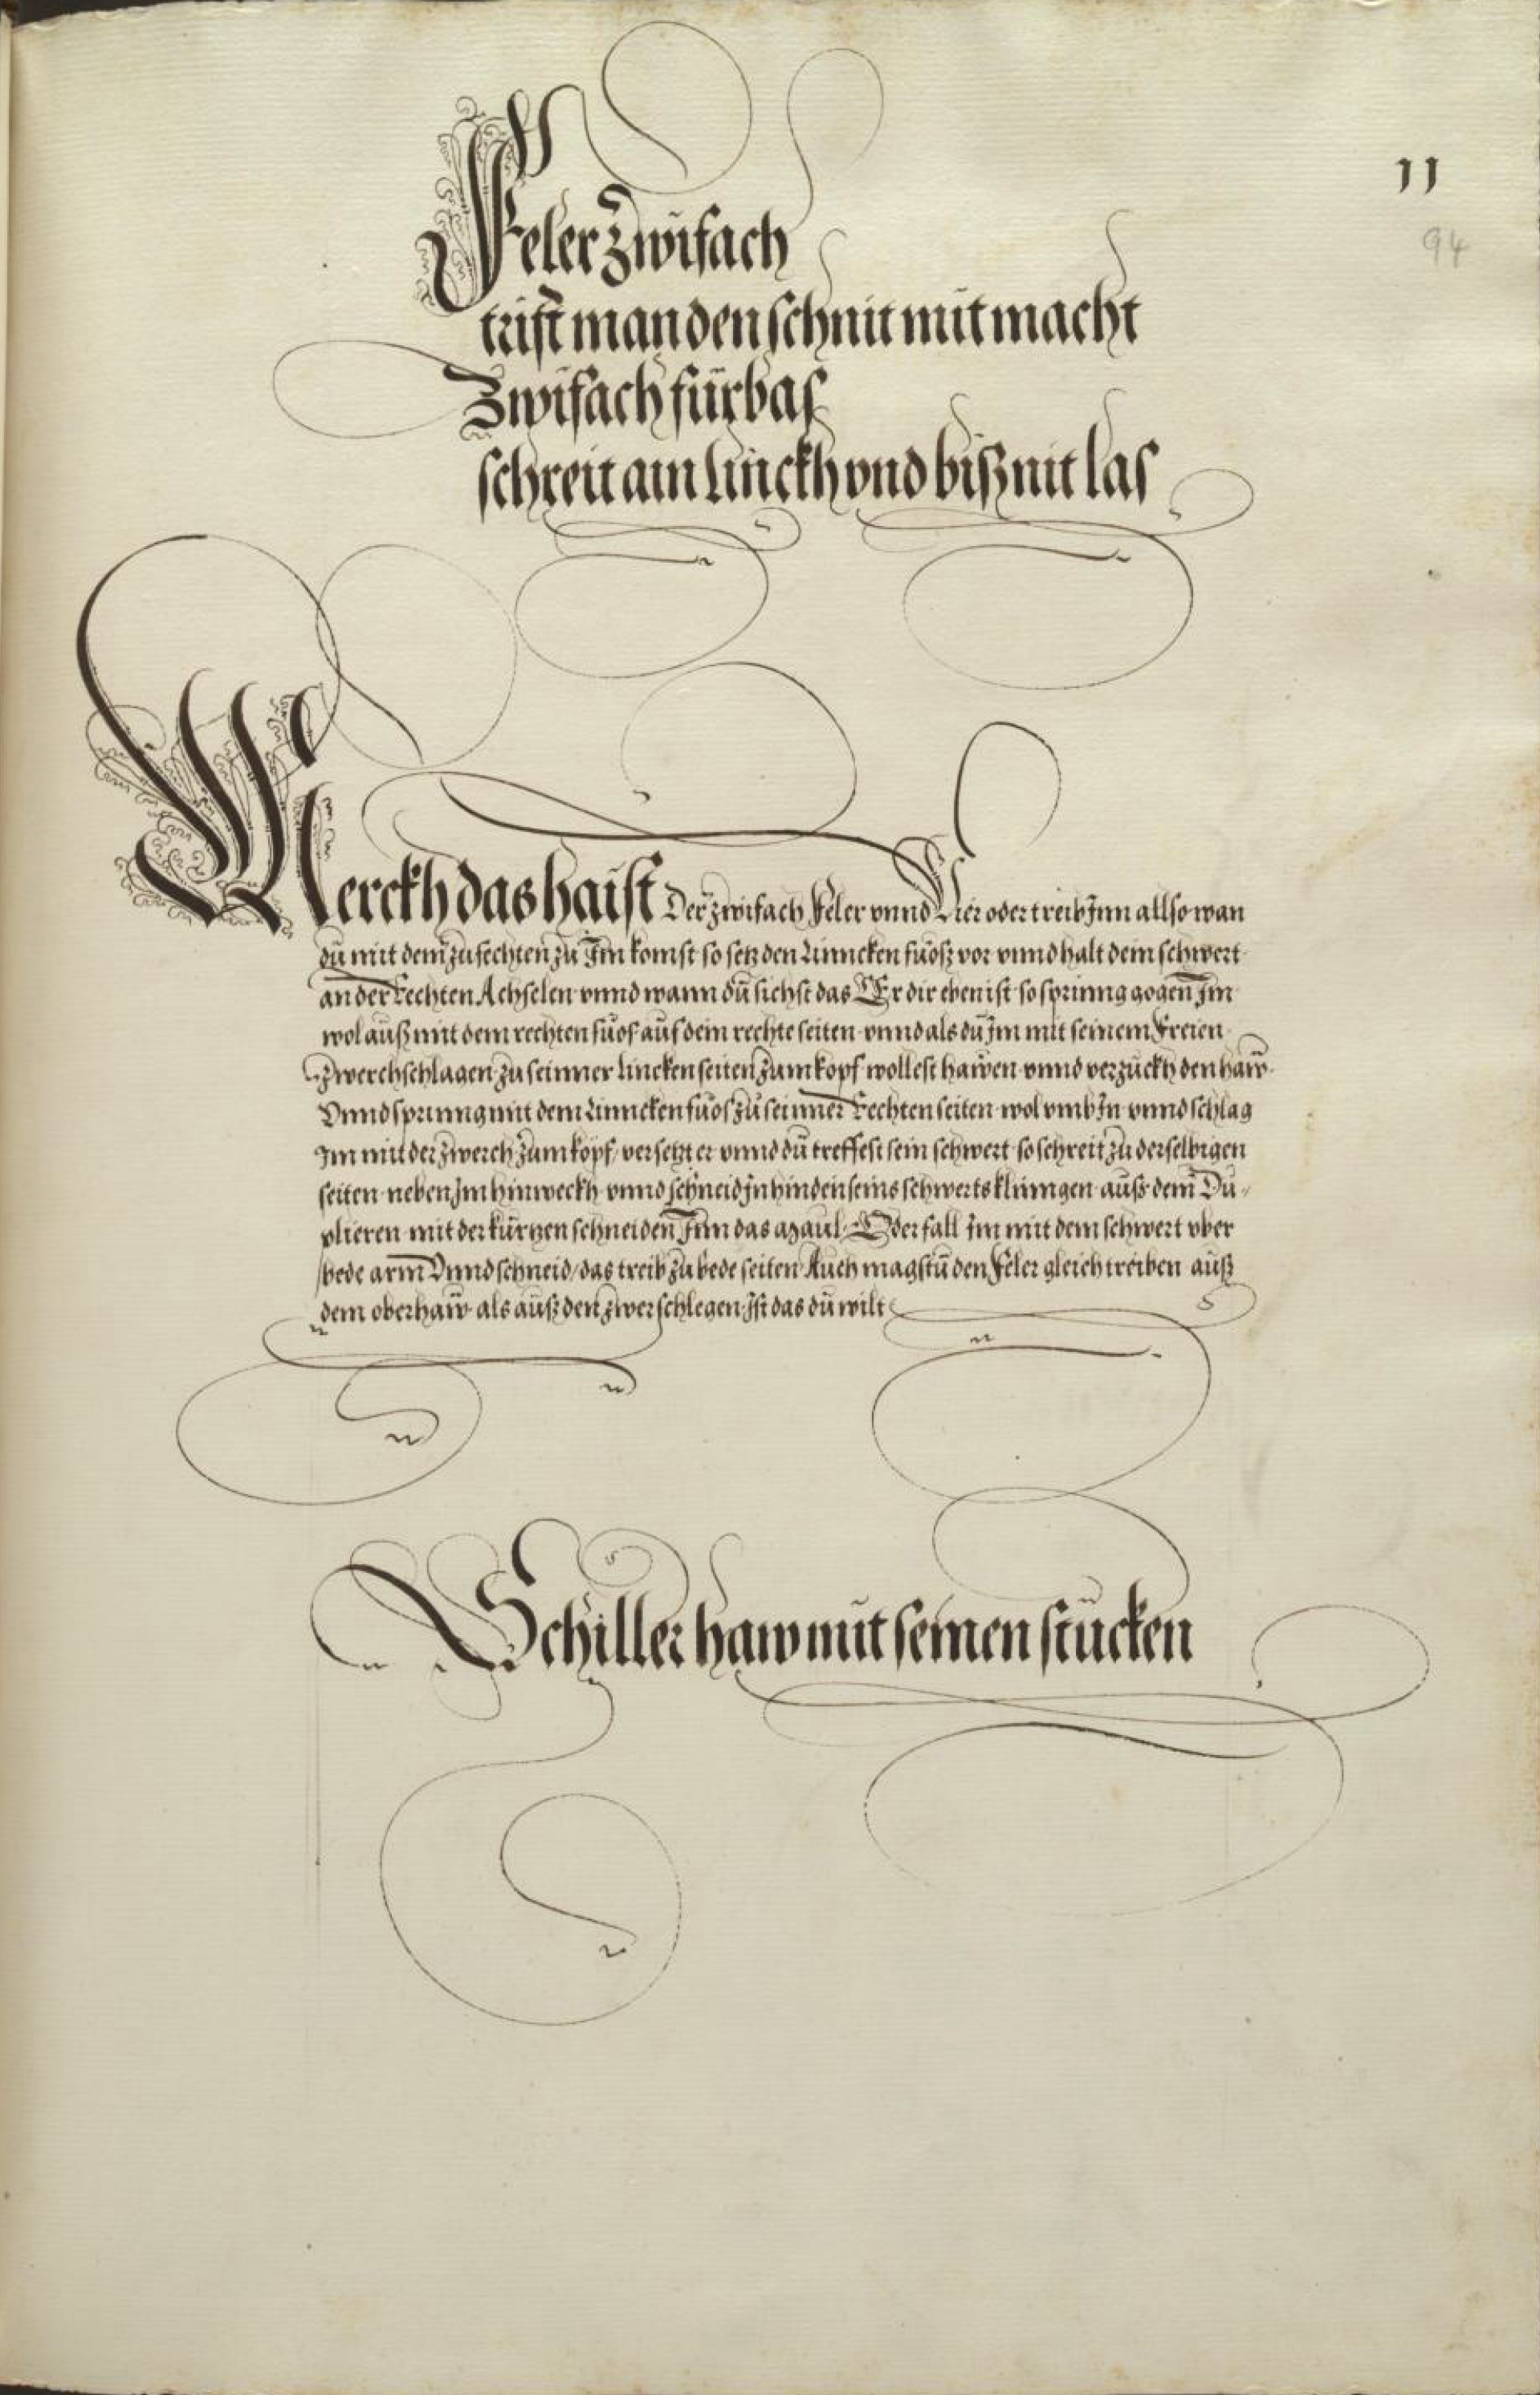 11
94
Feler zwifach
trift man den schnit mit macht
Zwifach fürbas
schreit ain linckh vnd bisz nit las
Merckh das haist Der zwifach Feler vnnd Vier oder treib Inn allso wan
dü mit dem zufechten zü Im komst so setz den Linncken füosz vor vnnd halt dein schwert
an der Rechten Achselen vnnd wann dü sichst das Er dir eben ist so sprinng gogen Im
wol ausz mit dem rechten füos auf dein rechte seiten vnnd als dü Im mit seinem Freien
Zwerchschlagen zu seinner lincken seiten zum kopf wollest hawen vnnd verzückh den haw
Vnnd sprinng mit dem Linncken füos zü seinner Rechten seiten wol vmb In vnnd schlag
Im mit der zwerch zum kopf versetzt er vnnd dü treffest sein schwert so schreit zu derselbigen
seiten neben Im hinweckh vnnd schneid In hinden seins schwerts klinngen ausz dem Du
plieren mit der kürtzen schneiden Inn das maul Oder fall Im mit dem schwert vber
bede arm Vnnd schneid das treib zu bede seiten Auch magstü den Feler gleich treiben ausz
dem oberhaw als ausz den zwerschlegen Ist das dü wilt
Schiller haw mit seinen stücken